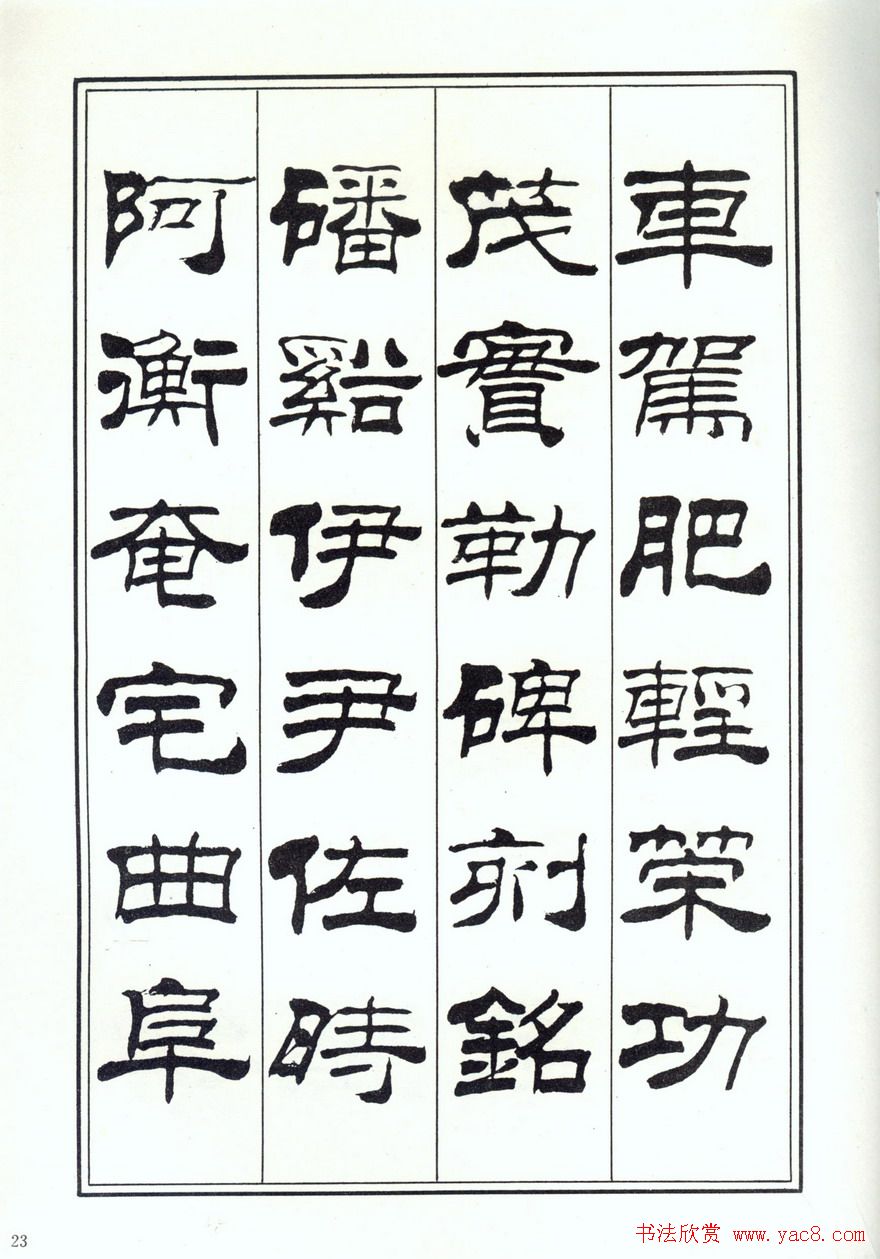 車駕肥輕策功
茂實勒碑刻銘
磻谿伊尹佐時
阿衡奄宅曲阜
23
书法欣赏 www.yac8.com